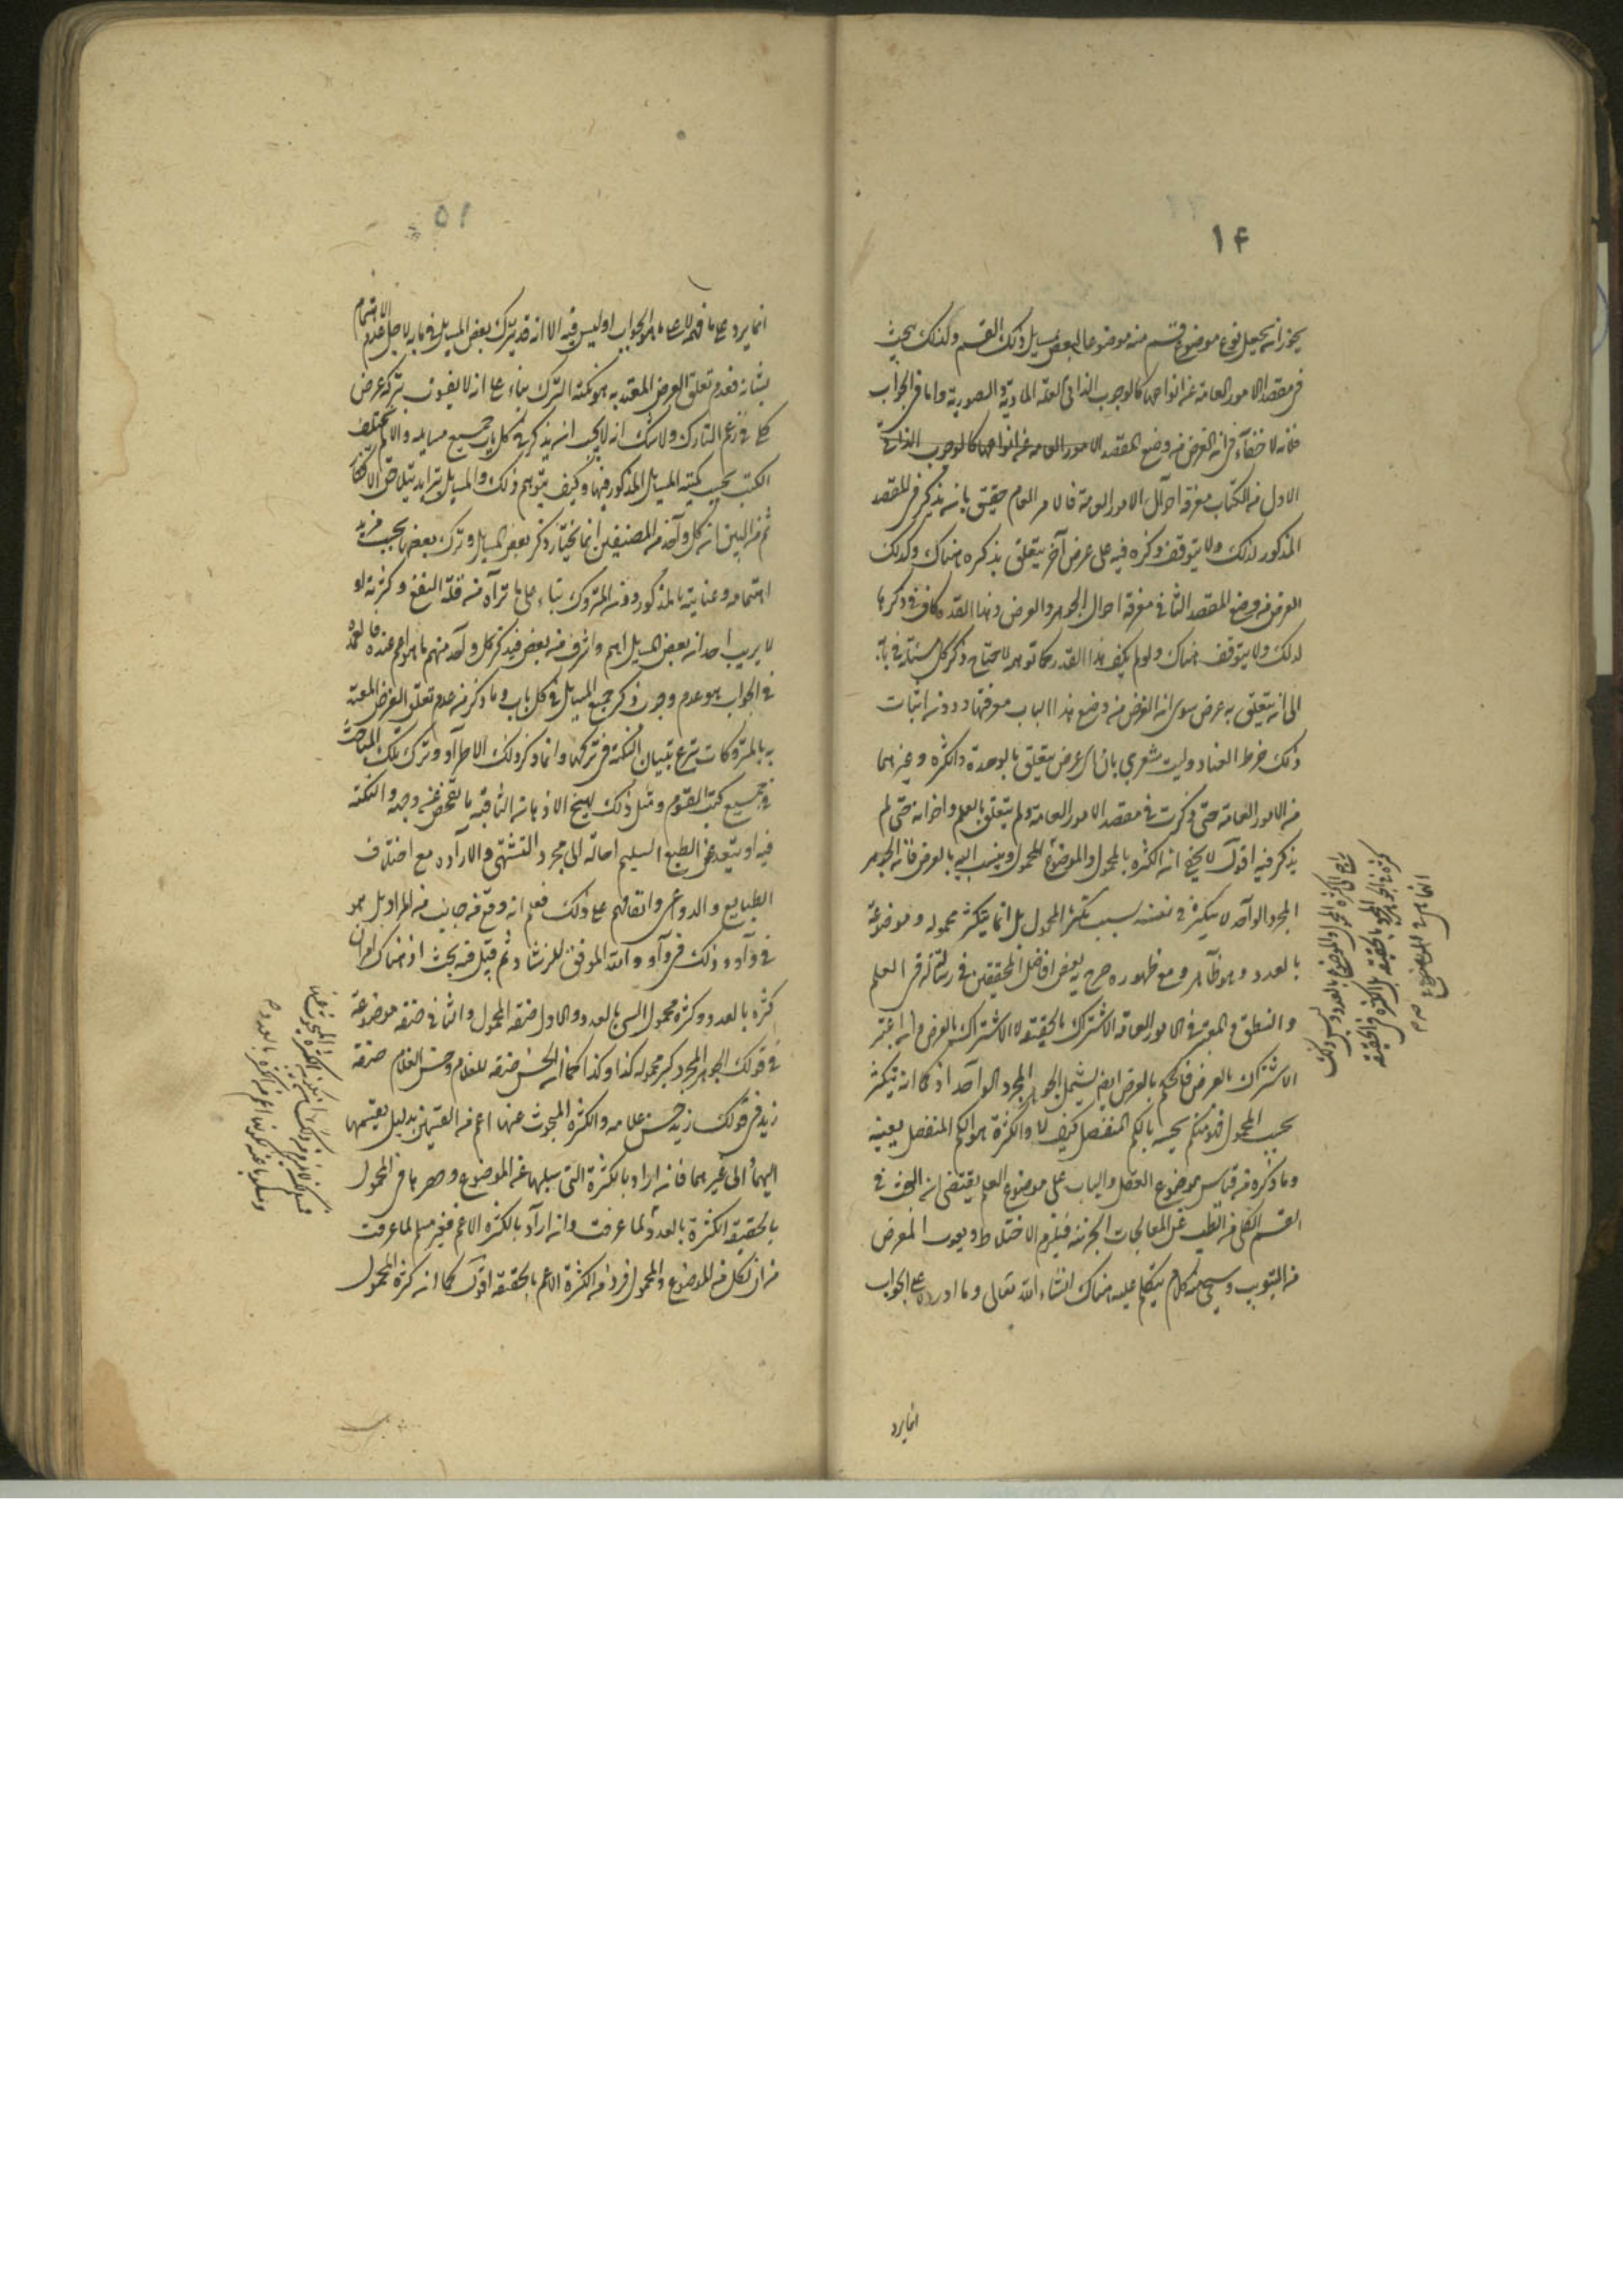 ١٤
يجوز ان يجعل نوع موضوع قسم منه موضوعا لبعض مسايل ذلك القسم ولذلك يبحث
فى مقصد الامور العامه عن انواعها كالوجوب الذاتى والعلة المادية والصورية واما فى الجواب
فلانه لا خفآء فى ان الغرض من وضع المقصد الامور العامه عن انواعها كالوجوب الذاتى
الاول من الكتاب معرفة احوال الامور العامة فالامر العام حقيق بان يذكر فى المقصد
المذكور لذلك ولا يتوقف ذكره فيه على غرض آخر يتعلق بذكره هناك وكذلك
الغرض من وضع المقصد الثانى معرفة احوال الجوهر والعرض وهذا القدر كاف فى ذكرها
لذلك ولا يتوقف هناك ولو لم يكف هذا القدر كما توهم لاحتاج ذكر كل مسئلة فى بابه
الى ان يتعلق به غرض سوى ان الغرض من وضع هذا الباب معرفتها ودون اثبات
ذلك خرط القتاد وليت شعرى بان اى غرض يتعلق بالوحدة والكثره وغيرهما
من الامور العامه حتى ذكرت فى مقصد الامور العامه ولم يتعلق بالعلم واخواته حتى لم
يذكر فيه اقول لا يخفى ان الكثره بالمحمول والموضوع للمحمول وينسب اليه بالعرض فان الجوهر
المجرد الواحد لا يتكثر فى نفسه بسبب تكثر المحمول بل انما يتكثر محموله وموضوعه
بالعدد وهو ظاهر ومع ظهوره صرح به بعض افاضل المحققين فى رسالته فى العلم
والمنطق والمعتبر فى الامور العامة الاشتراك بالحقيقة لا الاشتراك بالعرض وان اعتبر
الاشتراك بالعرض فالحكم بالعرض ايضا يشمل الجوهر المجرد الواحد اذ كما انه يتكثر
بحسب المحمول فهو متكمم بحسبه بالكم المنفصل كيف لا والكثرة هو الكم المنفصل بعينه
وما ذكره من قياس موضوع الفصل والباب على موضوع العلم يقتضى ان البحث فى
القسم الكلى من الطب عن المعالجات الجزئية فيلزم الاختلاط ويفوت الغرض
من التبويب وسيجئ كلام يتكلم عليه هناك انشاء الله تعالى وما اورده على الجواب
انما يرد
لكثرة المحمول والموضوع بالعدد وليس ذلك
كثرة فى الجوهر المجرد بالحقيقة بل الكثرة فى الحقيقة
١٥
انما يرد على ما فهمه لا على ما هو الجواب اذ ليس فيه الا انه قد يترك بعض المسايل فى بابه لاجل عدم الاهتمام
بشانه فعدم تعلق الغرض المعتد به هو نكتة الترك بناء على انه لا يفوت بتركه غرض
كلى فى زعم التارك ولا شك انه لا يجب ان يذكر فى كل باب جميع مسايله والا لم يختلف
الكتب بحسب كمية المسايل المذكورة فيها وكيف يتوهم ذلك والمسايل تتزايد بتلاحق الافكار
ثم من البين ان كل واحد من المصنفين انما يختار ذكر بعض المسايل وترك بعضها بحسب مزيد
اهتمامه وعنايته بالمذكور دون المتروك بناء على ما تراه من قلة النفع وكثرته او
لا يريب احد ان بعض المسايل اهم واشرف من بعض فيذكر كل واحد منهم ما هو اهم عنده فالعمدة
فى الجواب هو عدم وجوب ذكر جميع المسايل فى كل باب وما ذكر من عدم تعلق الغرض المعتد
به بالمتروكات تبرع بتبيان النكتة فى تركها وانما ذكر ذلك لاطراد ترك تلك المباحث
فى جميع كتب القوم ومثل ذلك يهيج الاذهان الثاقبة بالتفحص عن وجهه والنكتة
فيه او يتعد عن الطبع السليم احالته الى مجرد التشهى والارادة مع اختلاف
الطبايع والدواعى واتفاقهم على ذلك فعلم انه وقع من جانب من المراد بل هو
فى واد وذلك فى واد والله الموفق للرشاد ثم قيل فيه بحث اذ هناك امران
كثرة بالعدد وكثرة محمول الشئ بالعدد والاول صفة المحمول والثانى صفة موضوعه
فى قولك الجوهر المجرد كثير محموله كذا وكذا كما ان الحسن صفة للغلام وحسن الغلام صفة
زيد فى قولك زيد حسن غلامه والكثرة المبحوث عنها اعم من القسمين بدليل تقسيمها
اليهما والى غيرهما فانه اراد بالكثرة التى سلبها عن الموضوع وحصرها فى المحمول
بالحقيقة الكثرة بالعدد لما عرفت وان اراد بالكثره الاعم فغير مسلم لما عرفت
من ان لكل من الموضوع والمحمول فردا من الكثرة الاعم بالحقيقة اقول كما ان كثرة المحمول